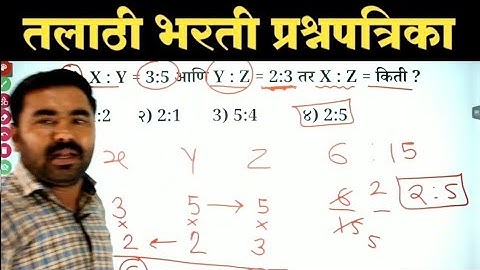 तलाठी भरती प्रश्नपत्रिका
X : Y = 3:5 आणि Y : Z = 2:3 तर X : Z = किती ?
:2 २) 2:1 3) 5:4 ४) 2:5
x y z 6 : 15
3 5 → 5 6 2 2:5
x x x 15 5
2 ← 2 3
6